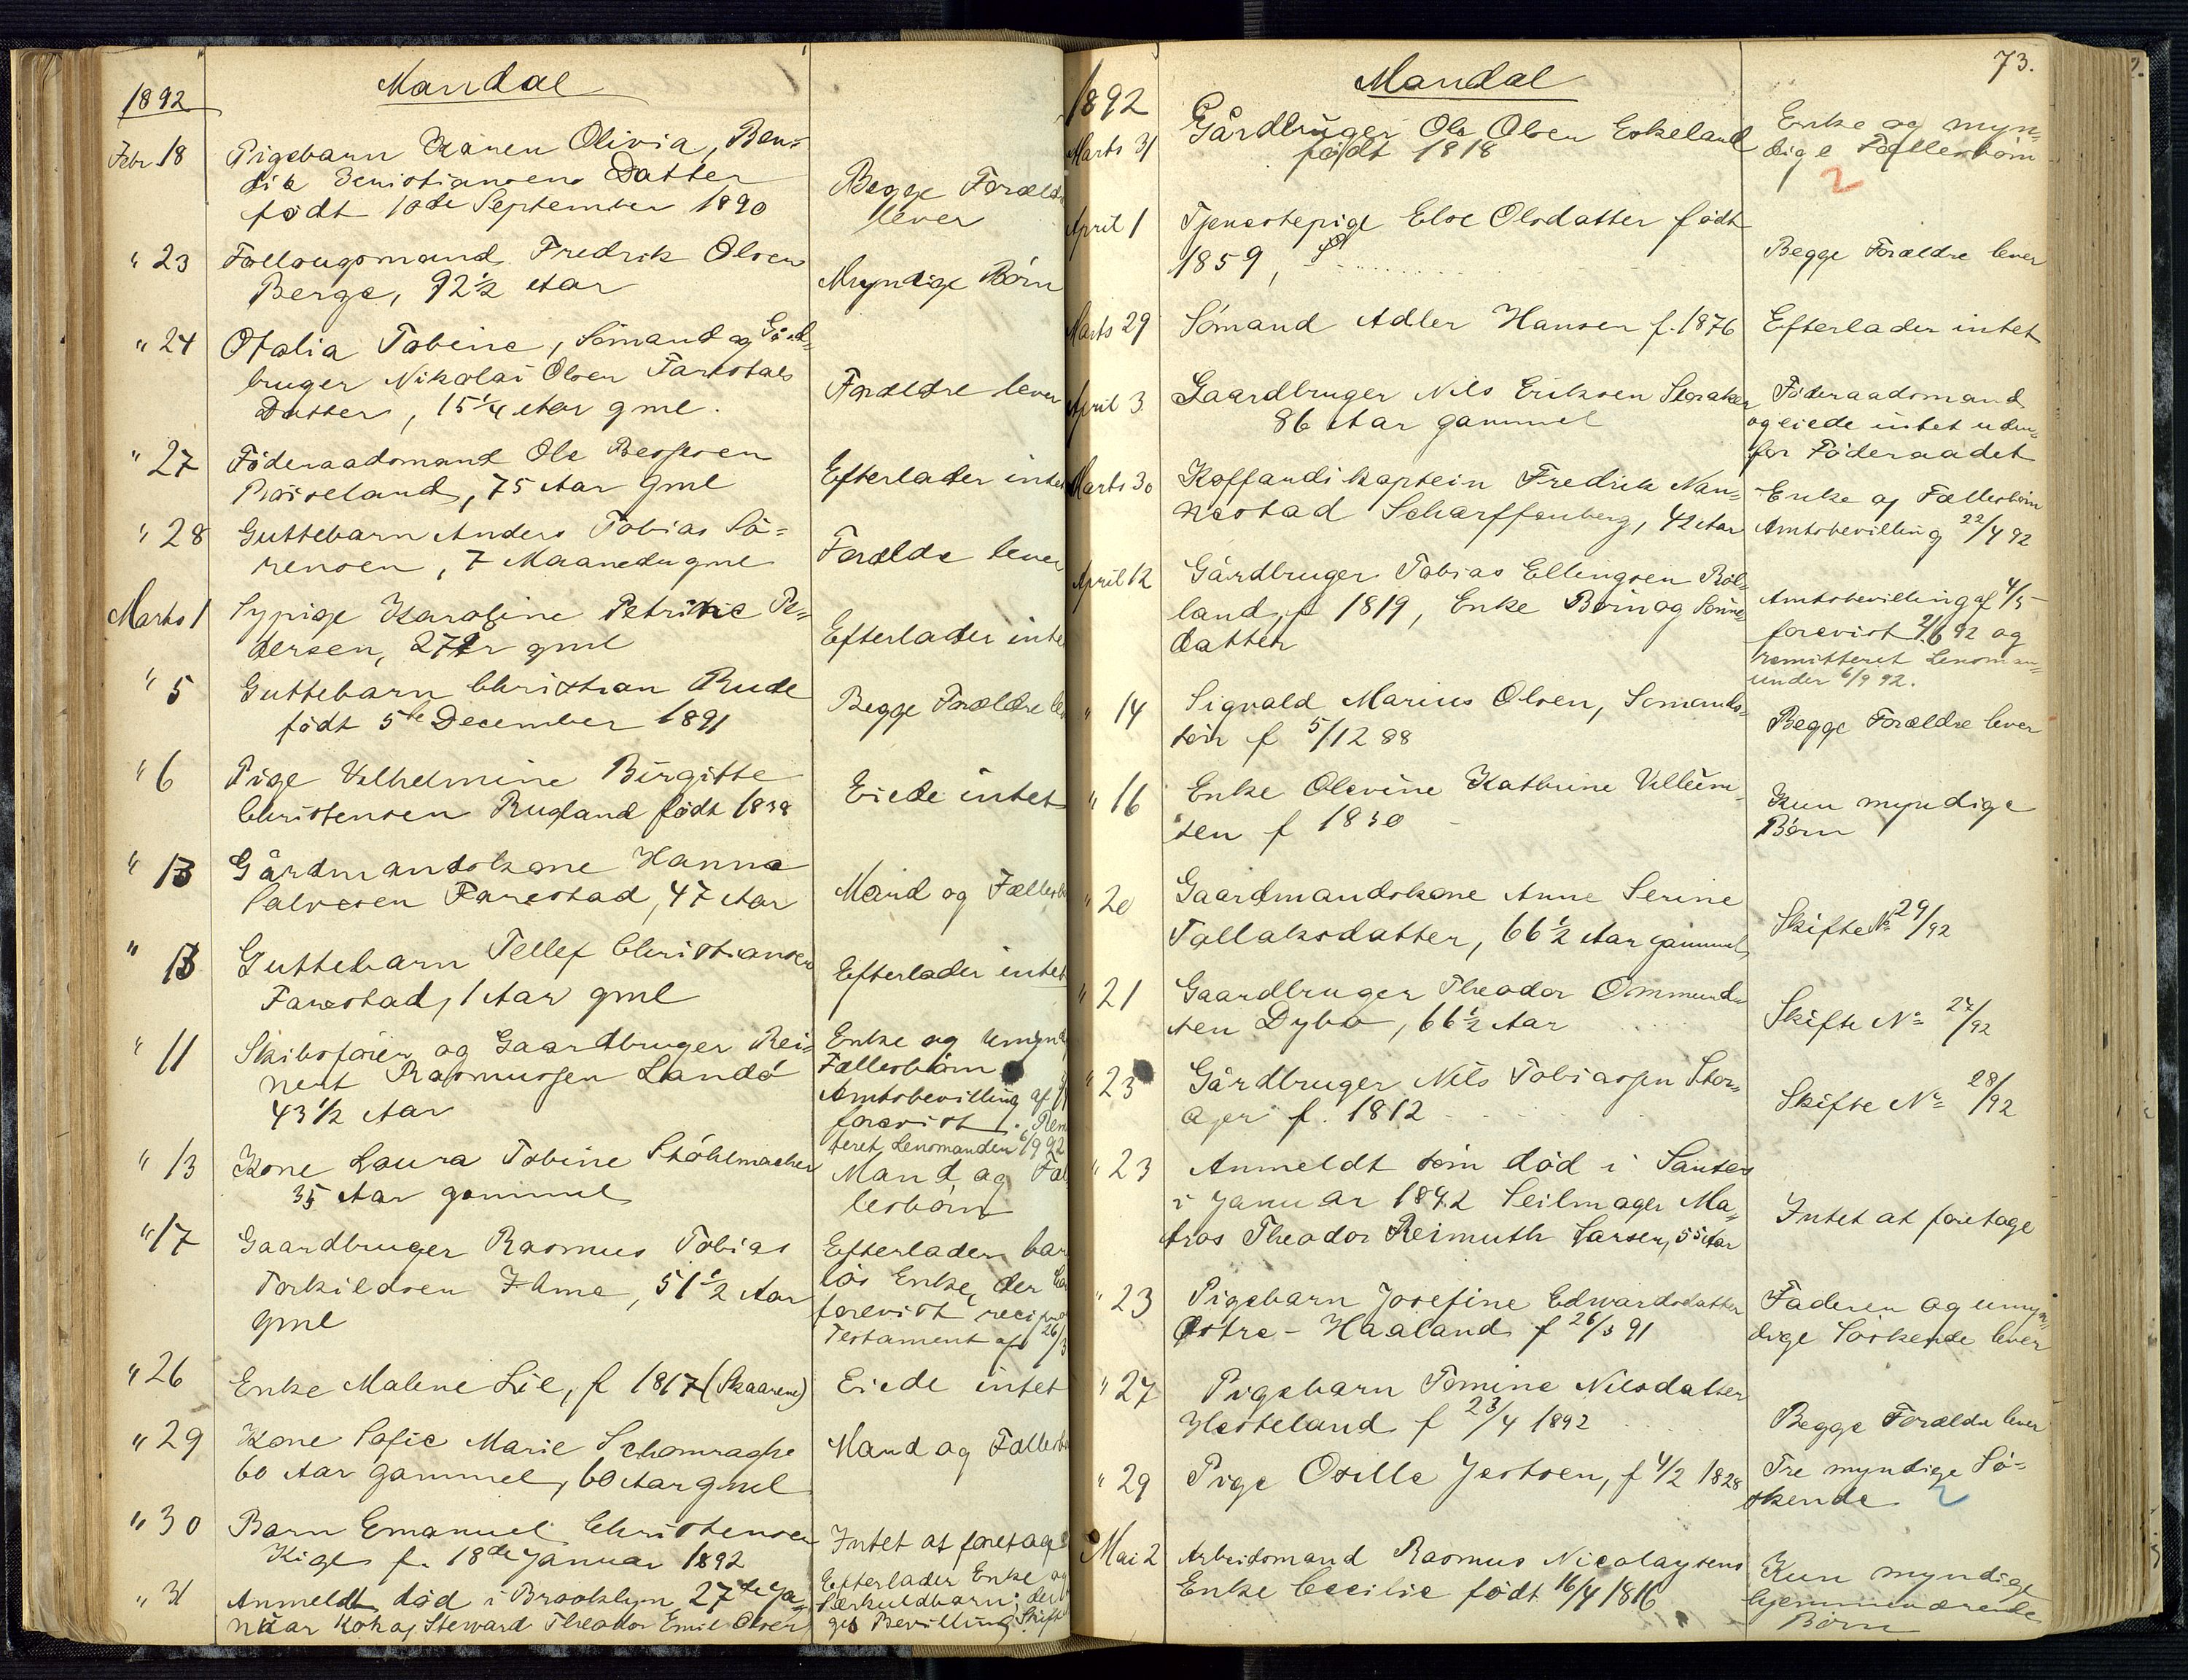 1892
Mandal
Febr 18
Pigebarn Karen Olivia, Ben=
dik Kristiansens Datter
født 10de September 1890
Begge Foræld
lever
" 23
Follaugsmand Fredrik Olsen
Berge, 92½ Aar
Myndige Børn
" 24
Otalia Tobine, Sömand og Gård=
bruger Nikolai Olsen Farestads
Datter, 15¼ Aar gml.
Forældre lever
" 27
Föderaadsmand Ole Bessesen
Röiseland, 75 Aar gml
Efterlader intet
" 28
Guttebarn Anders Tobias Sö=
rensen, 7 Maaneder gml
Forældre lever
Marts 1
Sypige Karoline Petrine Pe=
dersen, 27 År gml
Efterlader inte
" 5
Guttebarn Christian Rude
født 5te December 1891
Begge Forældre lev
" 6
Pige Vilhelmine Birgitte
Christensen Rugland født 1838
Eiede intet
" 13
Gårdmandskone Hanna
Salvesen Farestad, 47 Aar
Mand og Fællesb
" 13
Guttebarn Tellef Christiansen
Farestad, 1 Aar gml
Efterlader intet
" 11
Skibsfører og Gaardbruger Rei=
nert Rasmussen Landö
43½ Aar
Enke og umynd
Fællesbörn
Amtsbevilling af
forevist. Rem
teret Lensmanden 6/9 92
" 13
Kone Laura Tobine Stöhlmacher
35 Aar gammel
Mand og Fæl
lesbörn
" 17
Gaardbruger Rasmus Tobias
Torkildsen Ihme, 51½ Aar
gml
Efterlader bar
lös Enke, der har
forevist recipro
Testament af 26/3
" 26
Enke Malene Lie, f 1817 (Skaaren)
Eiede intet
" 29
Kone Sofie Marie Schomrashe
60 Aar gammel, 60 Aar gml
Mand og Fællesb
" 30
Barn Emanuel Christensen
Kige f. 18de Januar 1892
Intet at foretage
" 31
Anmeldt död i Brooklyn 27de Ja=
nuar Kok og Steward Theodor Emil Olsen
Efterlader Enke og
Særkuldbarn; der
ges Bevilling Skift
73.
1892
Mandal
Marts 31
Gårdbruger Ole Olsen Eskeland
født 1818
Enke og myn=
dige Fællesbörn
2
April 1
Tjenestepige Else Olsdatter født
1859,
Begge Forældre lever
Marts 29
Sömand Adler Hansen f. 1876
Efterlader intet
April 3
Gaardbruger Nils Eriksen Storaker
86 Aar gammel
Föderaadsmand
og eiede intet uden=
for Föderaadet
Marts 30
Koffardikaptein Fredrik Nan=
nestad Scharffenberg, 42 Aar
Enke og Fællesbörn
Amtsbevilling 22/4 92
April 12
Gårdbruger Tobias Ellingsen Röl=
land, f 1819, Enke Börn og Sönne=
datter
Amtsbevilling af 4/5
forevist 2/6 92 og
remitteret Lensman=
under 6/9 92.
" 14
Sigvald Marius Olsen, Sömands=
sön f 5/12 88
Begge Forældre lever
" 16
Enke Olevine Kathrine Villum=
sen f 1830
Kun myndige
Börn
" 20
Gaardmandskone Anne Serine
Tallaksdatter, 66½ Aar gammel
Skifte No 29/92
" 21
Gaardbruger Theodor Ommund=
sen Dybo, 66½ Aar
Skifte No 27/92
" 23
Gårdbruger Nils Tobiassen Stor=
ager f. 1812
Skifte No 28/92
" 23
Anmeldt som död i Santos
i Januar 1892 Seilmager Ma=
tros Theodor Reimuth Larsen, 55 Aar
Intet at foretage
" 23
Pigebarn Josefine Edwardsdatter
Östre-Haaland f 26/3 91
Faderen og umyn=
dige Söskende lever
" 27
Pigebarn Tomine Nilsdatter
Hesteland f 23/4 1892
Begge Forældre lever
" 29
Pige Osille Jentsen, f 4/2 1828
Tre myndige Sö=
skende
2
Mai 2
Arbeidsmand Rasmus Nicolaysens
Enke Cecilie født 16/4 1816
Kun myndige
hjemmeværende
Börn